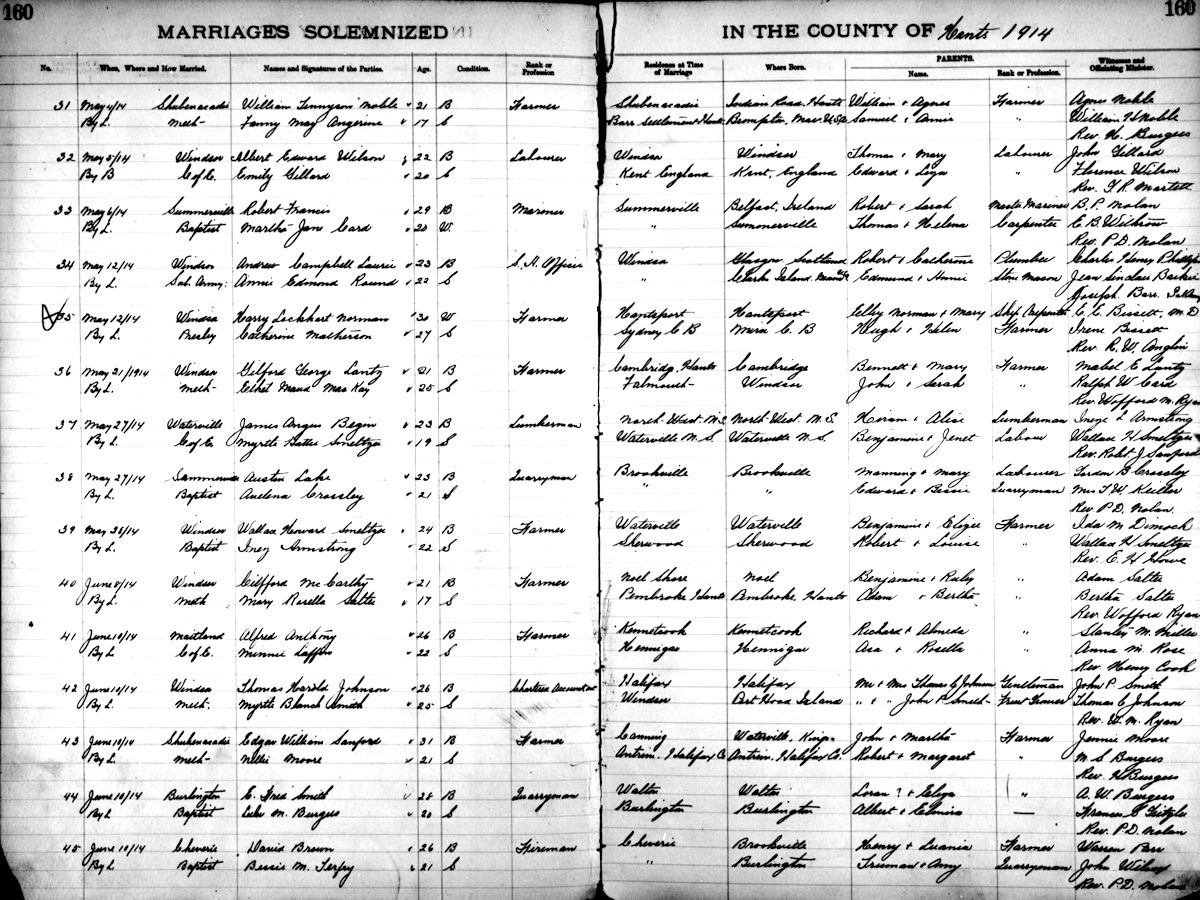 160
160
MARRIAGES SOLEMNIZED
IN THE COUNTY OF Hants 1914
No. When, Where and How Married. Names and Signatures of the Parties. Age. Condition. Rank or Profession Residence at Time of Marriage Where Born. PARENTS. Name. Rank or Profession. Witnesses and Officiating Minister.
31 May 4/14 Shubenacadie William Tennyson Noble 21 B Farmer Shubenacadie Indian Road, Hants William & Agnes Farmer Agnes Noble
By L. Meth- Fanny May 17 S Barr Settlement Hants Brompton, Mass U.S.A Samuel & Annie " William H Noble
Rev. H. Burgess
32 May 5/14 Windsor Albert Edward Wilson 22 B Labourer Windsor Windsor Thomas & Mary Labourer John Gillard
By B C of E. Emily Gillard 20 S Kent England Kent, England Edward & Liza " Florence Wilson
Rev. T. R. Martell
33 May 6/14 Summerville Robert Francis 29 B Mariner Summerville Belfast, Ireland Robert & Sarah Master Mariner B. P. Nolan
By L. Baptist Martha Jane Card 20 W. " Summerville Thomas & Helena Carpenter E. B. Withrow
Rev. P.D. Nolan
34 May 12/14 Windsor Andrew Campbell Laurie 23 B S. A. Officer Windsor Glasgow Scotland Robert & Catherine Plumber Charles Henry
By L. Sal. Army. Annie Edmond Round 22 S " Clark Island, Edmund & Annie Stone Mason Jean Sinclair
Joseph Barr.
35 May 12/14 Windsor Harry Lockhart Norman 30 W Farmer Hantsport Hantsport Norman & Mary Ship Carpenter E. E. Bissett, M.D
By L. Presby Catherine Matheson 27 S Sydney C B Mira C. B Hugh & Helen Farmer Irene Bissett
Rev. R. W. Anglin
36 May 21/1914 Windsor Gilford George Lantz 21 B Farmer Cambridge, Hants Cambridge Bennett & Mary Farmer Mabel E Lantz
By L. Meth- Ethel Maud MacKay 25 S Falmouth- Windsor John & Sarah " Ralph W Card
Rev Wofford M. Ryan
37 May 27/14 Waterville James Angus 23 B Lumberman North West. N.S. North West. N.S. Hiram & Alice Lumberman Inez L Armstrong
By L. C of E. Myrtle Smeltzer 19 S Waterville N.S. Waterville N.S. Benjamin & Jenet Labour Wallace H Smeltzer
Rev. Robt J Sanford
38 May 27/14 Summerville Austen Lake 23 B Quarryman Brookville Brookville Manning & Mary Labourer Gordon B Crossley
By L. Baptist Crossley 21 S " " Edward & Bessie Quarryman Mrs T W
Rev P.D. Nolan.
39 May 28/14 Windsor Wallace Howard Smeltzer 24 B Farmer Waterville Waterville Benjamin & Eliza Farmer Ida M Dimock
By L. Baptist Inez Armstrong 22 S Sherwood Sherwood Robert & Louise " Wallace H Smeltzer
Rev. E. H Howe
40 June 8/14 Windsor Clifford McCarthy 21 B Farmer Noel Shore Noel Benjamin & Ruby " Adam Salter
By L. Meth Mary Rosella Salter 17 S Pembroke, Hants Pembroke, Hants Adam & Bertha " Bertha Salter
Rev. Wofford Ryan
41 June 10/14 Maitland Alfred Anthony 26 B Farmer Kennetcook Kennetcook Richard & Almeda " Stanley M. Miller
By L C of E. Minnie Laffin 22 S Hennigar Hennigar Asa & Rosella " Anna M. Rose
Rev Henry Cook
42 June 10/14 Windsor Thomas Harold Johnson 26 B Chartered Accountant Halifax Halifax Mr & Mrs Thomas C Johnson Gentleman John P. Smith
By L. Meth- Myrtle Blanch Smith 25 S Windsor Port Hood Island " & " John P. Smith- Fruit Grower Thomas C Johnson
Rev. W. M. Ryan
43 June 10/14 Shubenacadie Edgar William Sanford 31 B Farmer Canning Waterville, Kings John & Martha Farmer Jennie Moore
By L Meth- Nellie Moore 21 S Antrim, Halifax Co Antrim, Halifax Co. Robert & Margaret " M S Burgess
Rev. H Burgess
44 June 10/14 Burlington E. Fred Smith 28 B Quarryman Walton Walton Loran ? & Eliza " A. W Burgess
By L Baptist M. Burgess 20 S Burlington Burlington Albert & Elmira —
Rev. P.D. Nolan
45 June 10/14 Cheverie David Brown 26 B Fireman Cheverie Brookville Henry & Luania Farmer Warren Parr
By L. Baptist Bessie M. Terfry 21 S " Burlington Truman & Amy Quarryman John Wilson
Rev. P.D. Nolan